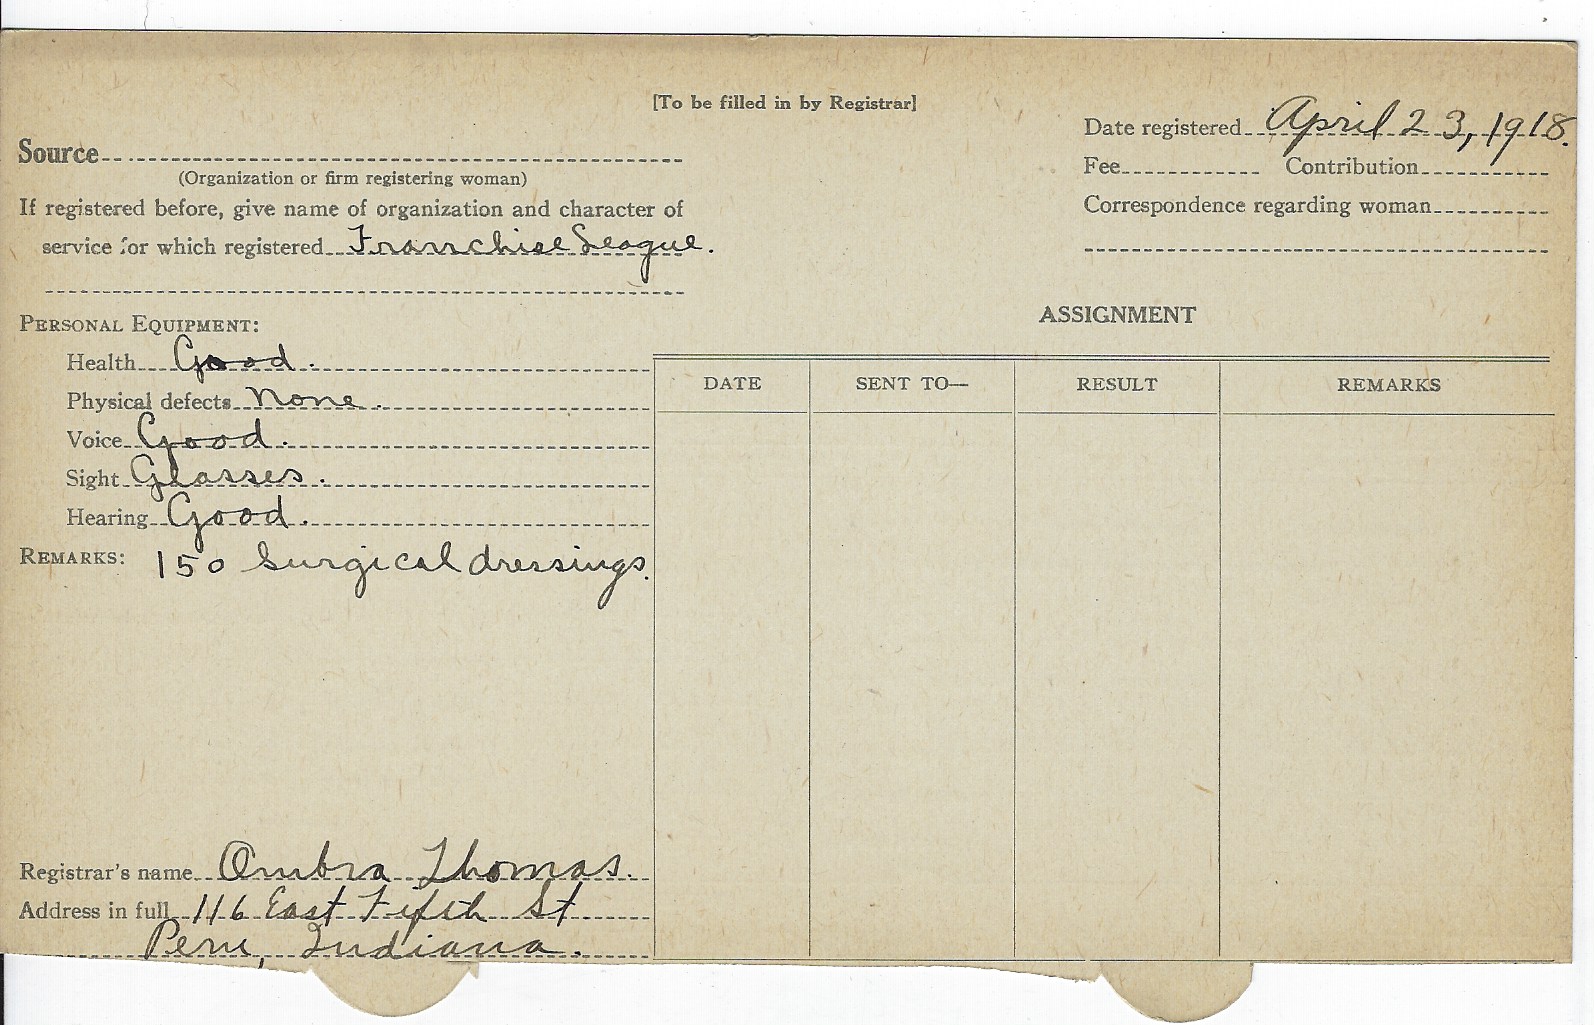 [To be filled in by Registrar]
Date registered April 23, 1918.
Source
Fee Contribution
(Organization or firm registering woman)
If registered before, give name of organization and character of
Correspondence regarding woman
service for which registered Franchise League.
PERSONAL EQUIPMENT:
ASSIGNMENT
Health Good.
DATE SENT TO— RESULT REMARKS
Physical defects None.
Voice Good.
Sight Glasses.
Hearing Good.
REMARKS: 150 Surgical dressings.
Registrar's name Ombra Thomas.
Address in full 116 East Fifth St
Peru, Indiana.